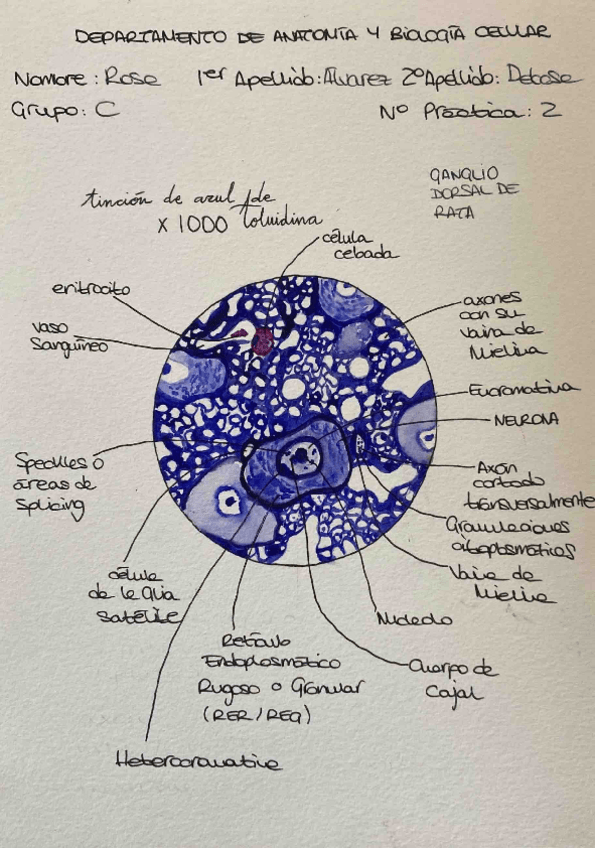 DEPARTAMENTO DE ANATOMÍA Y BIOLOGÍA CELULAR
Nombre: Rose 1er Apellido: Álvarez 2º Apellido: Debase
Grupo: C Nº Práctica: 2
GANGLIO
DORSAL DE
RATA
tinción de azul de
toluidina
X 1000
célula
cebada
eritrocito
vaso
sanguíneo
axones
con su
vaina de
Mielina
Eucromatina
NEURONA
Speckles o
áreas de
splicing
Axón
cortado
transversalmente
Granulaciones
citoplasmáticas
Vaina de
Mielina
célula
de la Glía
satélite
Nucleolo
Retículo
Endoplasmático
Rugoso o Granular
(RER/REG)
Cuerpo de
Cajal
Heterocromatina